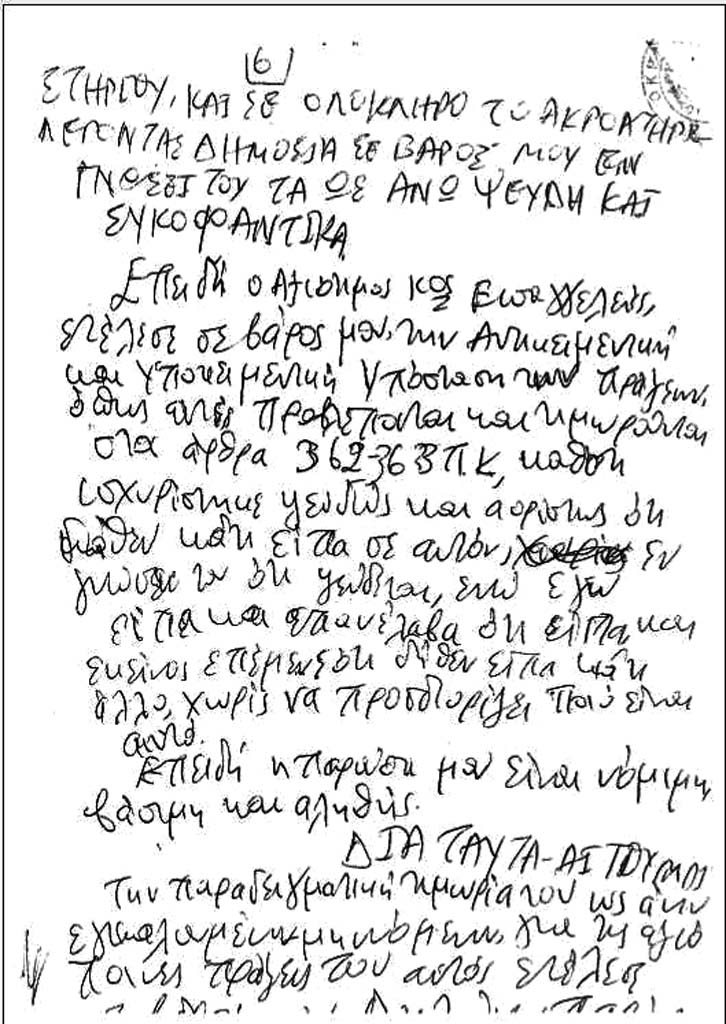 6
ΣΤΗΡΙΟΥ, ΚΑΙ ΣΕ ΟΛΟΚΛΗΡΟ ΤΟ ΑΚΡΟΑΤΗΡΙΟ
ΛΕΓΟΝΤΑΣ ΔΗΜΟΣΙΑ ΣΕ ΒΑΡΟΣ ΜΟΥ ΕΝ
ΓΝΩΣΕΙ ΤΟΥ ΤΑ ΩΣ ΑΝΩ ΨΕΥΔΗ ΚΑΙ
ΣΥΚΟΦΑΝΤΙΚΑ
Επειδή ο Αξιότιμος κος Εισαγγελεύς,
ετέλεσε σε βάρος μου, την Αντικειμενική
και Υποκειμενική Υπόσταση των πράξεων,
όπως αυτές προβλέπονται και τιμωρούνται
στα άρθρα 362-363 Π.Κ, καθότι
ισχυρίστηκε ψευδώς και αορίστως ότι
δήθεν κάτι είπα σε αυτόν, εν
γνώσει του ότι ψεύδεται, ενώ εγώ
είπα και επανέλαβα ότι είπα, και
εκείνος επέμενε ότι δήθεν είπα κάτι
άλλο, χωρίς να προσδιορίζει ποιό είναι
αυτό.
Επειδή η παρούσα μου είναι νόμιμη,
βάσιμη και αληθής.
ΔΙΑ ΤΑΥΤΑ-ΑΙΤΟΥΜΑΙ
την παραδειγματική τιμωρία του ως άνω
εγκαλουμένου, για τις αξιό
ποινες πράξεις που αυτός ετέλεσε